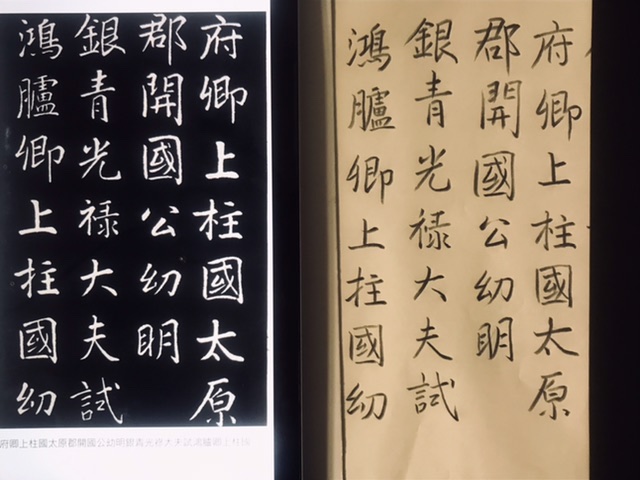 府卿上柱國太原
郡開國公幼明
銀青光禄大夫試
鴻臚卿上柱國幼
府卿上柱國太原郡開國公幼明銀青光祿大夫試鴻臚卿上柱國
府卿上柱國太原
郡開國公幼明
銀青光禄大夫試
鴻臚卿上柱國幼